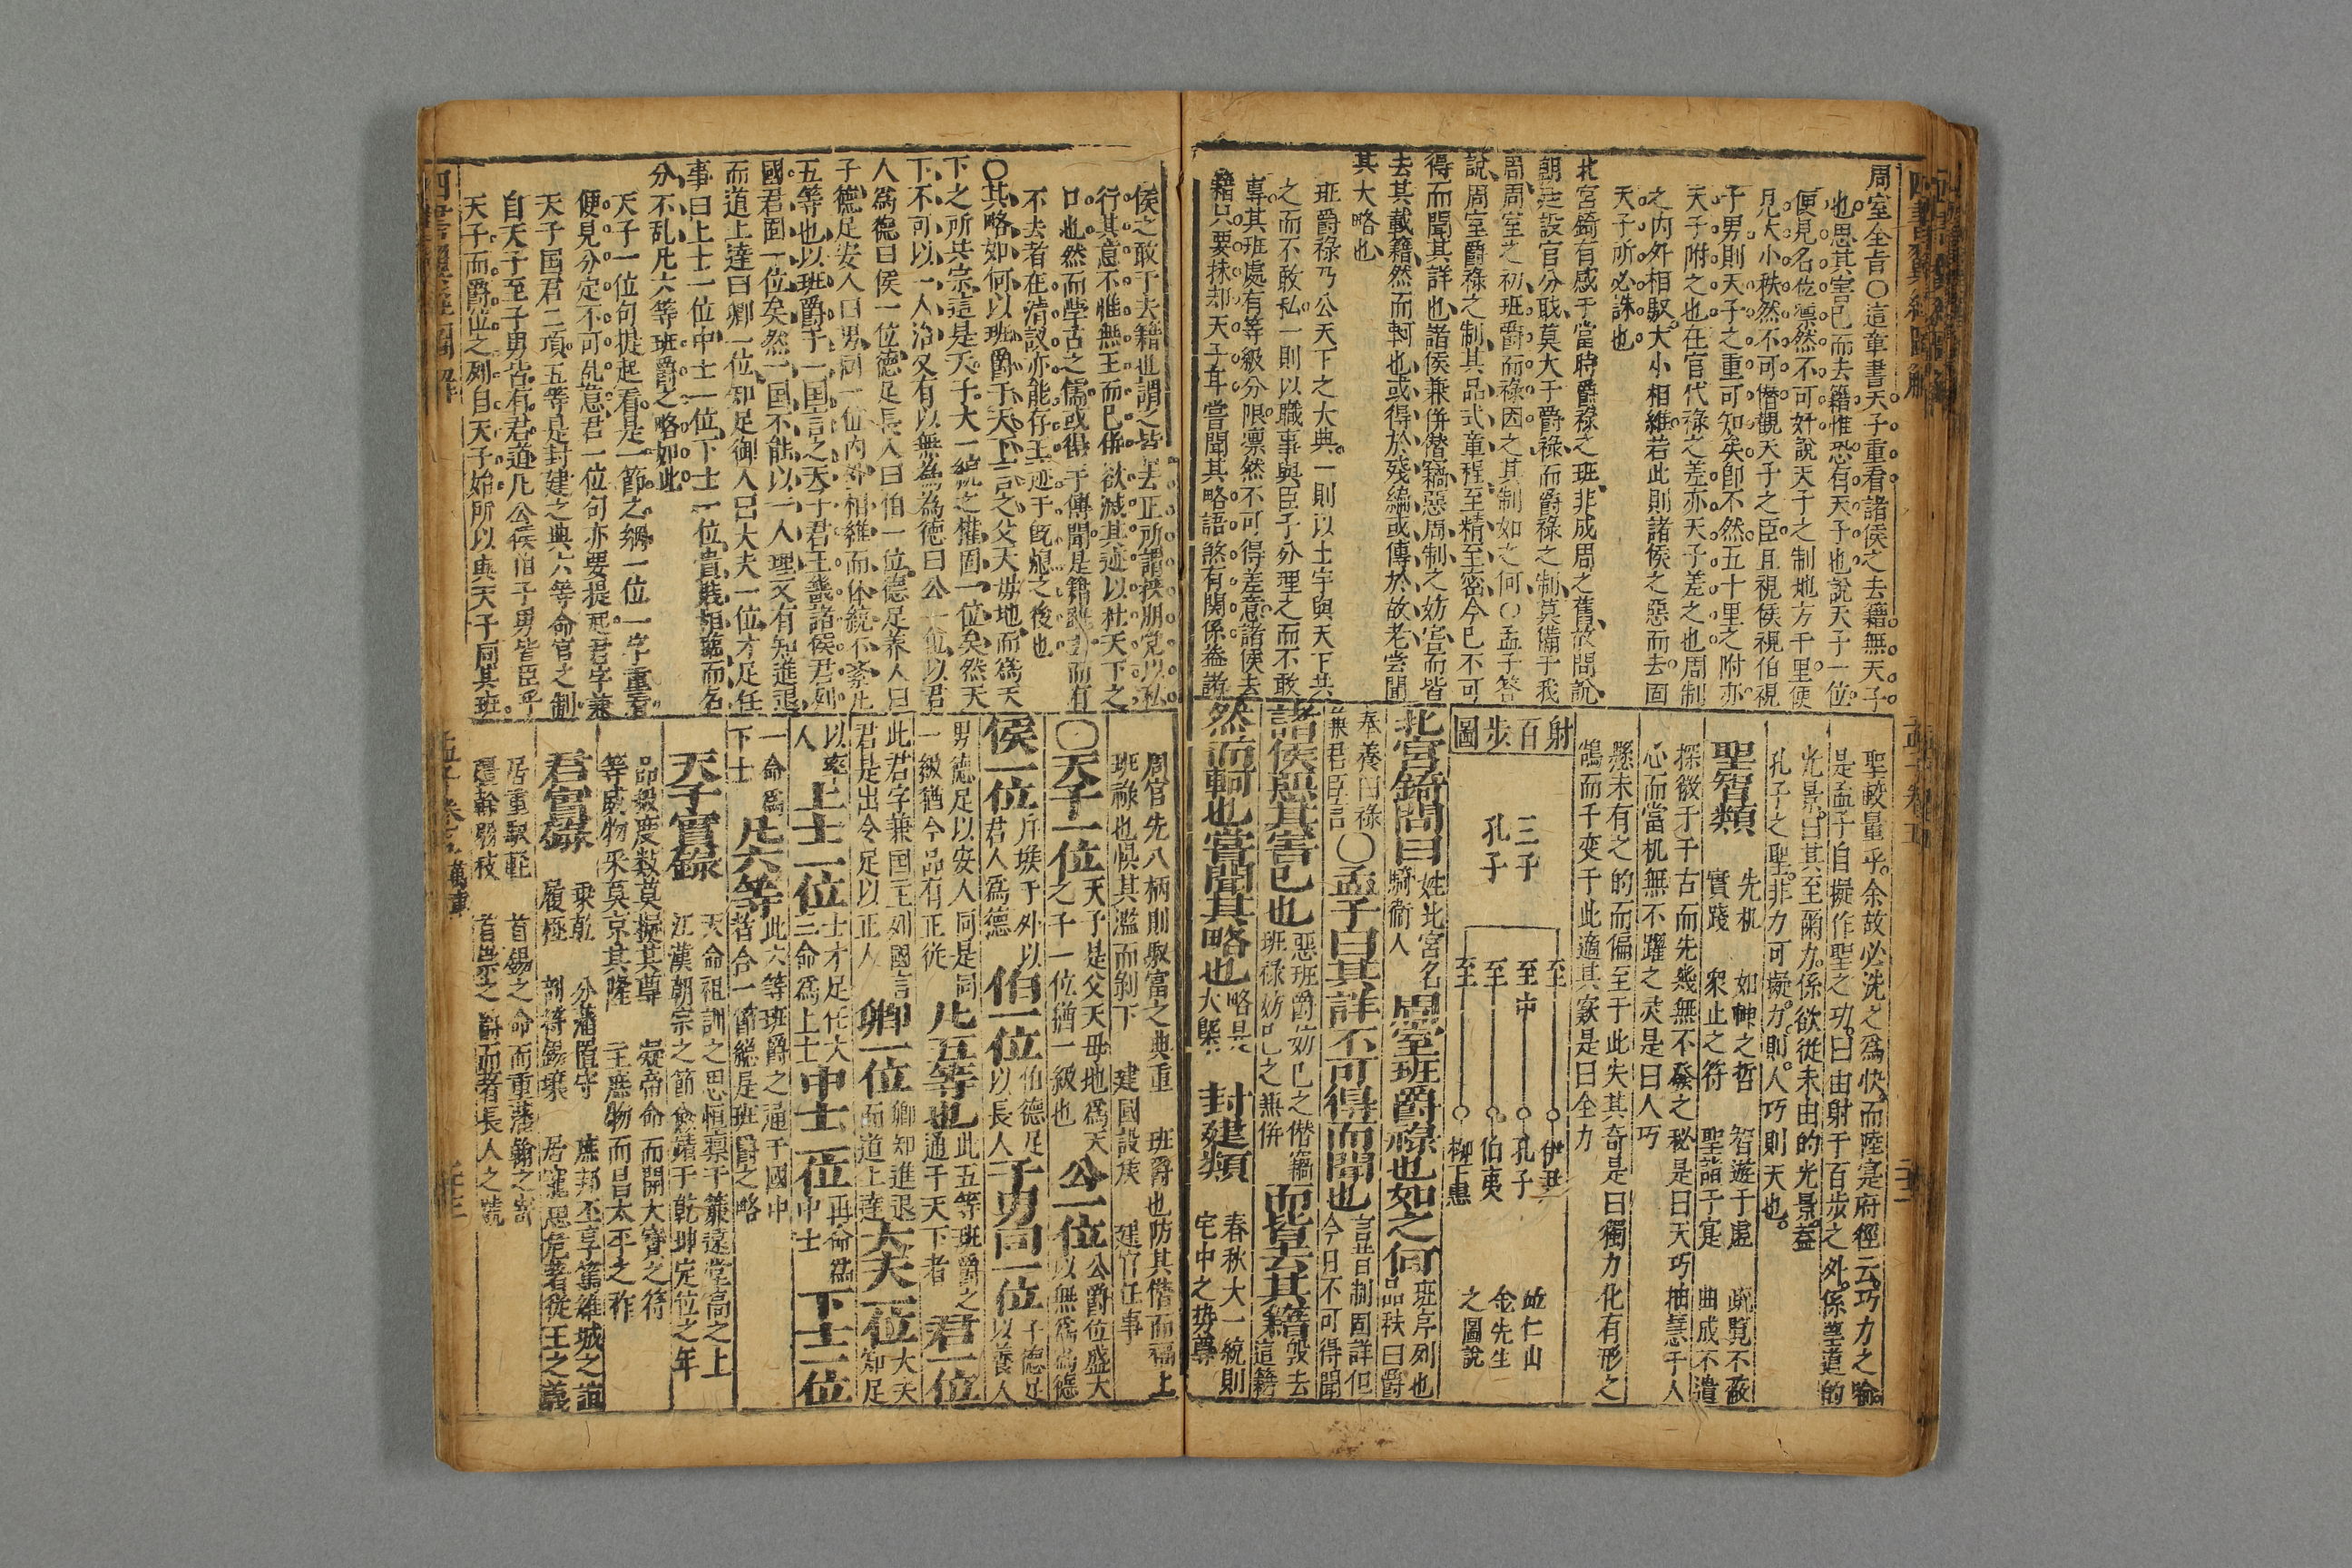 周室全旨〇這章書天子重看諸侯之去籍無天子
也思其害己而去籍惟恐有天子也說天子一位
便見名位凛然不可奸說天子之制地方千里便
見大小秩然不可僭觀天子之臣且視侯視伯視
子男則天子之重可知矣即不然五十里之附亦
天子附之也在官代祿之差亦天子差之也周制
之內外相馭大小相維若此則諸侯之惡而去固
天子所必誅也
北宮錡有感于當時爵祿之班非成周之舊故問說
朝廷設官分职莫大于爵祿而爵祿之制莫備于我
周周室之初班爵而祿因之其制如之何〇孟子答
說周室爵祿之制其品式章程至精至密今已不可
得而聞其詳也諸侯兼併僭竊惡周制之妨害而皆
去其載籍然而軻也或得於殘編或傳於故老嘗聞
其大略也
班爵祿乃公天下之大典一則以土宇與天下共
之而不敢私一則以職事與臣子分理之而不敢
專其班處有等級分限凛然不可得差意諸侯去
籍只要抹却天子耳嘗聞其略語煞有関係葢諸
聖較量乎余故必洗之爲快而陸寔府徑云巧力之喻
是孟子自擬作聖之功曰由射于百步之外係聖道的
光景曰其至爾力係欲從未由的光景葢
孔子之聖非力可擬力則人巧則天也
聖智類 先机 如神之哲 智遊于虛 眖覽不蔽
實踐 衆止之符 聖詣于寔 曲成不遺
探微于千古而先幾無不發之秘是曰天巧抽慧于人
心而當机無不躍之灵是曰人巧
懸未有之的而偏至于此失其奇是曰獨力化有形之
鵠而千变于此適其窽是曰全力
射百步圖
三子
孔子
至 伊尹
至中 孔子
至 伯夷
至 柳下惠
金先生
之圖說
北宮錡問曰姓北宮名錡衛人周室班爵祿也如之何班序列也品秩曰爵
奉養曰祿兼君臣言〇孟子曰其詳不可得而聞也言昔日制固詳但今日不可得聞
諸侯惡其害己也惡班爵妨己之僭竊班祿妨己之兼併而皆去其籍毀去這籍
然而軻也嘗聞其略也略是大槩 封建類 春秋大一統則宅中之势尊
侯之敢于去籍也謂之皆去正所謂挾朋党以私
行其意不惟無王而已併欲滅其迹以杜天下之
口也然而學古之儒或得于傳聞是籍雖去而有
不去者在清議亦能存王迹于既熄之後也
〇其略如何以班爵于天下言之父天母地而爲天
下之所共宗這是天子大一統之權固一位矣然天
下不可以一人治又有以無為為德曰公一位以君
人爲德曰侯一位德足長人曰伯一位德足养人曰
子德足安人曰男同一位內外相維而体統不紊凡
五等也以班爵于一国言之天子君王畿諸侯君列
國君固一位矣然一国不能以一人理又有知進退
而道上達曰卿一位知足御人曰大夫一位才足任
事曰上士一位中士一位下士一位貴賤相臨而名
分不乱凡六等班爵之略如此
天子一位句提起看是一節之綱一位一字重看
便見分定不可乱意君一位句亦要提起君字兼
天子国君二項五等是封建之典六等命官之制
自天子至子男皆有君道凡公侯伯子男皆臣乎
天子而爵位之列自天子始所以與天子同其班
周官先八柄則馭富之典重 班爵也防其僭而福上
班祿也懼其濫而剝下 建國設矦 建官任事
〇天子一位天子是父天母地爲天之子一位猶一級也公一位公爵位盛大以無爲為德
侯一位斥堠于外以君人爲德伯一位伯德足以長人子男同一位子德足以養人
男德足以安人同是同一級猶今品有正從凡五等也此五等班爵之通于天下者君一位
此君字兼国王列國言君是出令足以正人卿一位卿知進退而道上達大夫一位大夫知足
以率人上士一位士才足任大三命爲上士中士一位再命爲中士下士一位
一命爲下士凡六等此六等班爵之通于國中皆合一節總是班爵之略
天子實錄 天命祖訓之思恒凛于簾遠堂高之上
江漢朝宗之節愈肅于乾坤定位之年
品級度数莫擬其尊 凝帝命而開大寶之符
等威物采莫京其隆 主庶物而昌太平之祚
君實錄 乗乾 分藩置守 庶邦丕享篤維城之誼
履極 剖符錫壤 居寵思危者從王之義
居重馭軽 首錫之命而重藩翰之寄
彊幹弱枝 首邑之爵而著長人之號